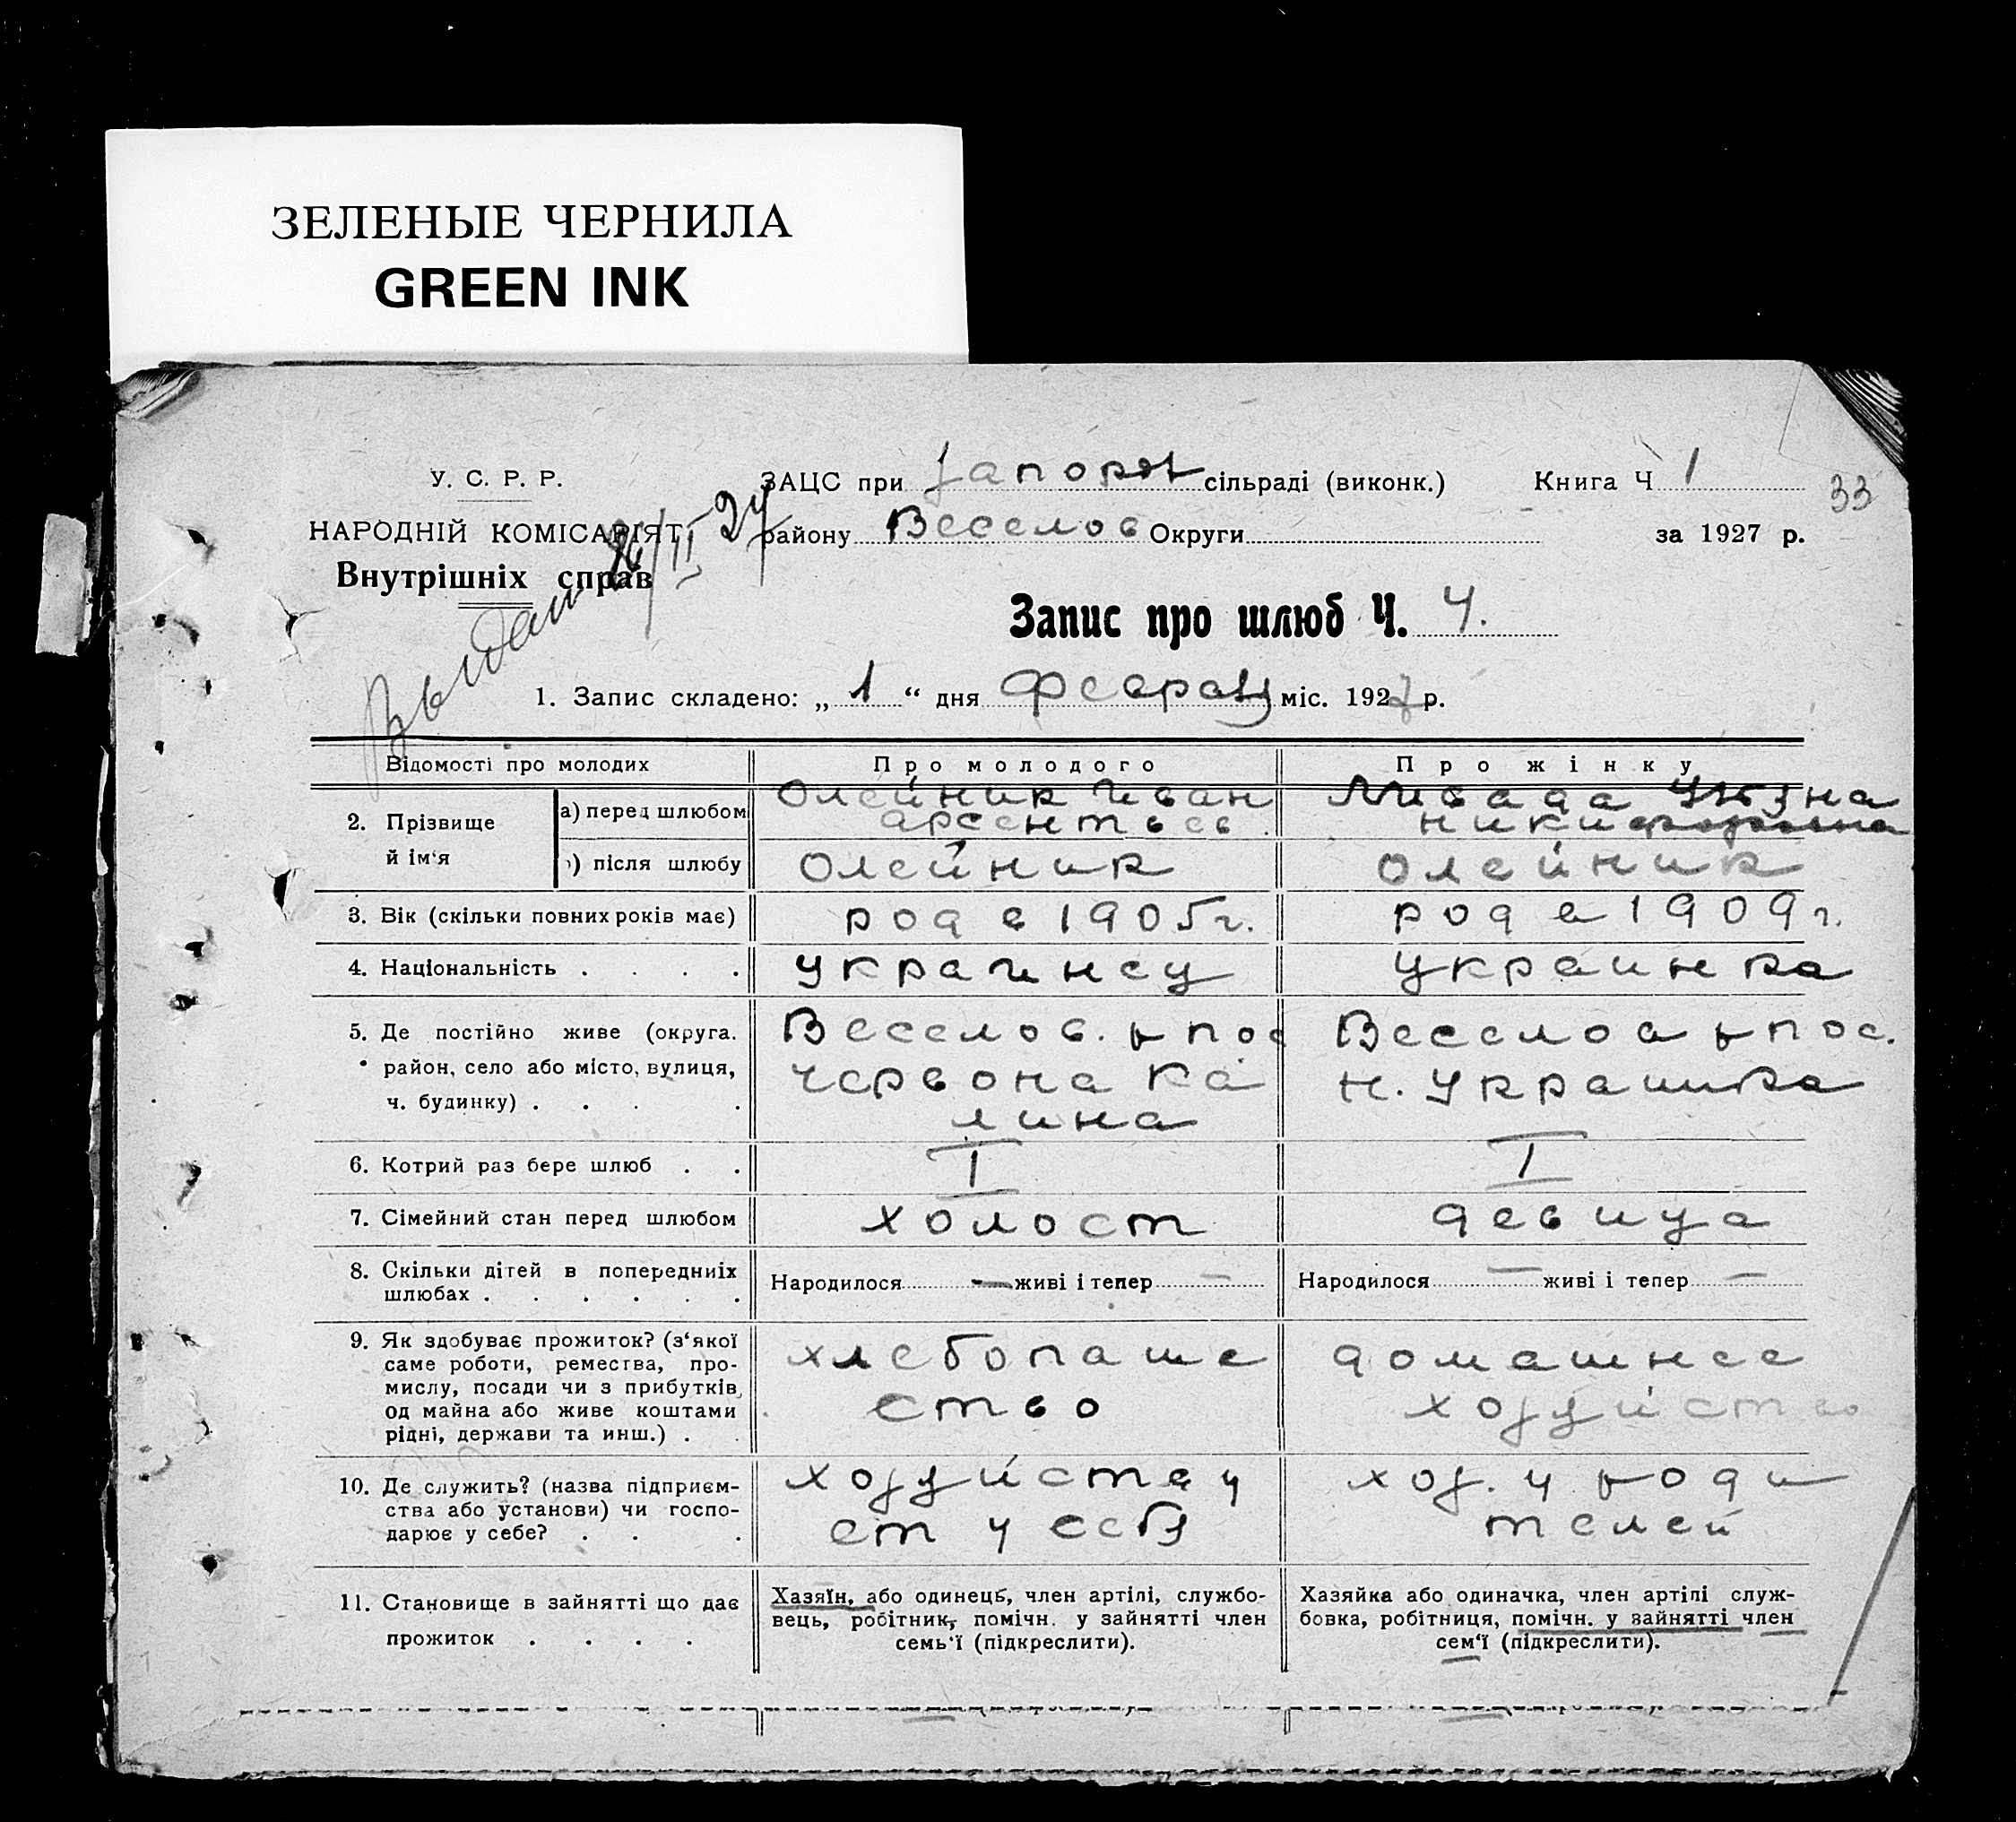 ЗЕЛЕНЫЕ ЧЕРНИЛА
GREEN INK
У. С. Р. Р.
НАРОДНІЙ КОМІСАРІЯТ
Внутрішніх справ
ЗАЦС при Запорож сільраді (виконк.)
Книга Ч 1
33
району Веселов Округи
за 1927 р.
Запис про шлюб Ч. 4.
1. Запис складено: „ 1 “ дня февраля міс. 1927 р.
Відомості про молодих
Про молодого
Про жінку
2. Прізвище й ім‘я
а) перед шлюбом
Олейник Иван
арсентьев
Ливада
на
) після шлюбу
Олейник
Олейник
3. Вік (скільки повних років має)
род в 1905г.
род в 1909г.
4. Національність . . . .
украинец
украинка
5. Де постійно живе (округа.
район, село або місто, вулиця,
ч. будинку) . . . .
Веселов. р пос
червона ка
лина
Веселов р пос.
Н. Украинка
6. Котрий раз бере шлюб . .
I
I
7. Сімейний стан перед шлюбом
холост
девица
8. Скільки дітей в попередниіх
шлюбах . . . . . .
Народилося — живі і тепер —
Народилося — живі і тепер —
9. Як здобуває прожиток? (з‘якої
саме роботи, ремества, про-
мислу, посади чи з прибутків,
од майна або живе коштами
рідні, держави та инш.) .
хлебопаше
ство
домашнее
хозяйство
10. Де служить? (назва підприєм-
ства або установи) чи госпо-
дарює у себе? . . .
хозяйству
ет у себя
хоз. у роди
телей
11. Становище в зайнятті що дає
прожиток . . . .
Хазяїн, або одинець, член артілі, службо-
вець, робітник, помічн. у зайнятті член
семь‘ї (підкреслити).
Хазяйка або одиначка, член артілі служ-
бовка, робітниця, помічн. у зайнятті член
сем‘ї (підкреслити).